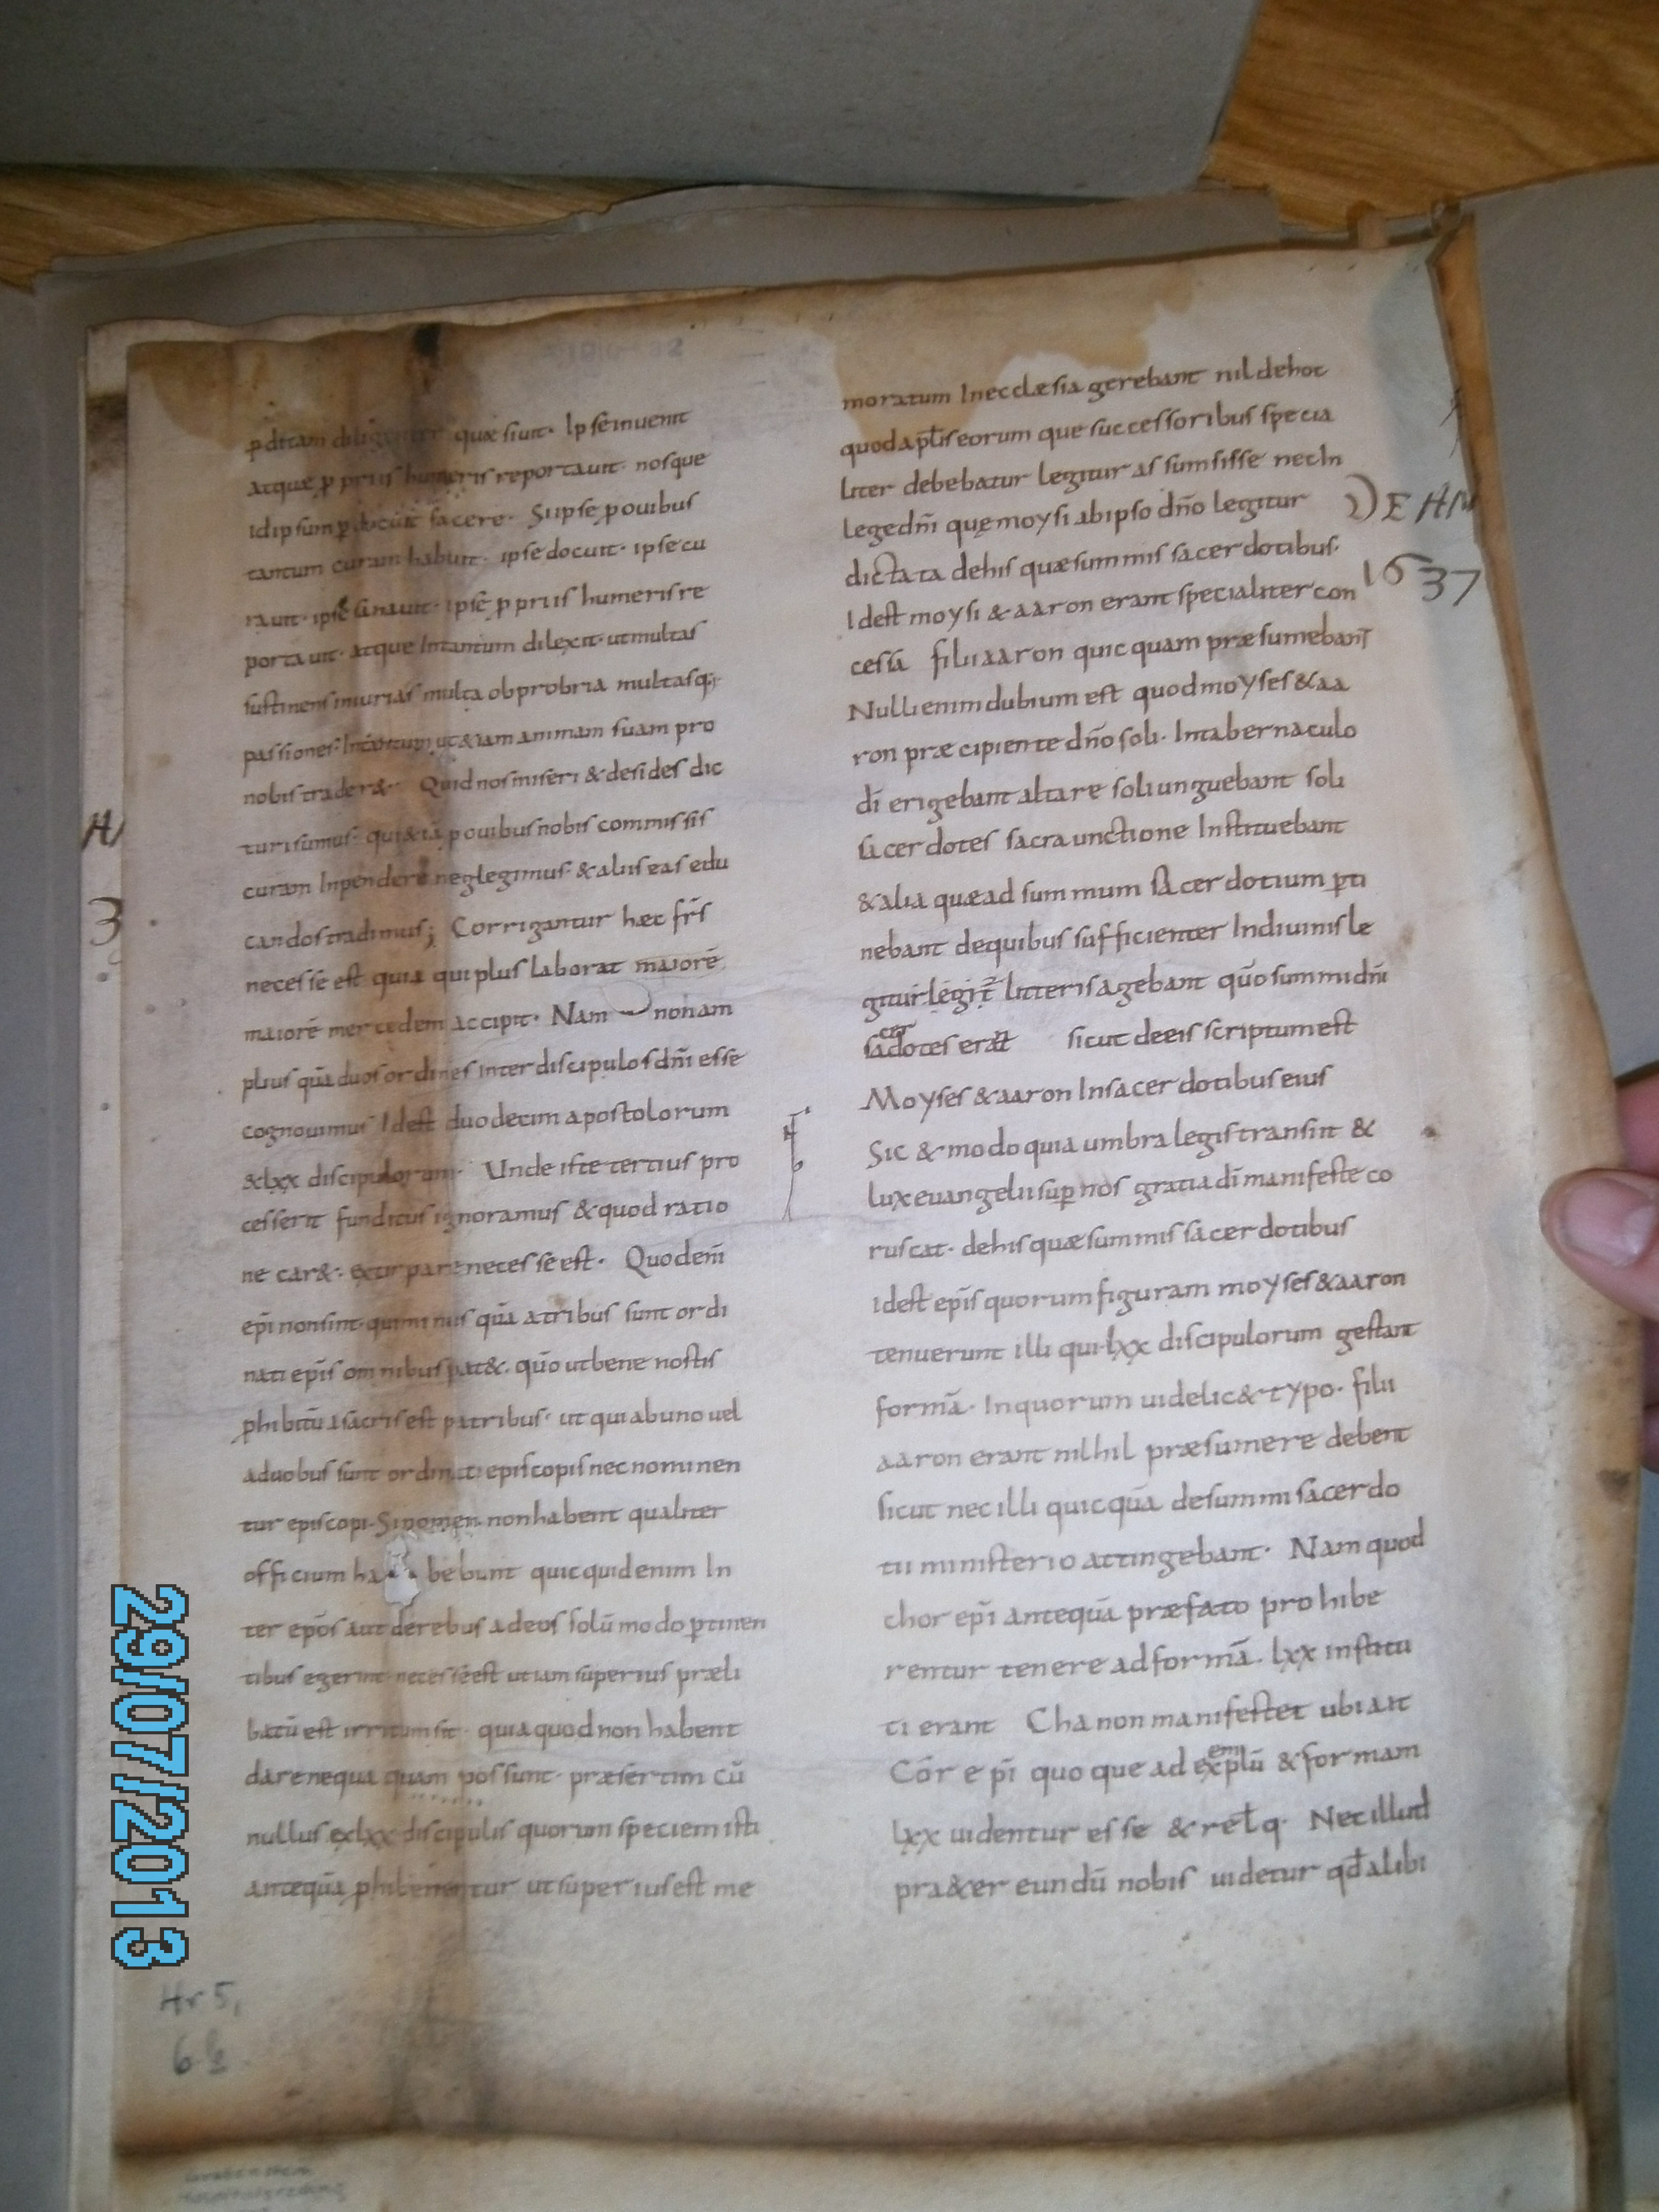 p̱ditam diligenter quæsiuit· Ipse inuenit
atque p̱ propriis humeris reportauit· nosque
id ipsum p̱docuit facere· Si ipse p̱ ouibus
tantum curam habuit· ipse docuit· ipse cu
rauit· ipse sanauit· ipse p̱priis humeris re
portauit· atque Intantum dilexit· ut multas
sustinens iniurias multa obprobria multasq;
passiones· Intantum ut &iam animam suam pro
nobis trader&· Quid nos miseri & desides dic
turi sumus· qui &iā p̱ ouibus nobis commissis
curam Inpendere neglegimus· & aliis eas edu
candos tradimus; Corrigantur hæc frīs
necesse est quia qui plus laborat maiorē
maiorē mercedem accipit· Nam non am
plius quā duos ordines inter discipulos dn̄i esse
cognouimus Id est duodecim apostolorum
& lxx discipulorum· Unde iste tertius pro
cesserit funditus ignoramus & quod ratio
ne car&· extirpari necesse est· Quod em̄
ep̄i non sint· qui minus quā a tribus sunt ordi
nati ep̄is omnibus pat&· quō ut bene nostis
p̱hibitū a sacris est patribus· ut qui ab uno uel
a duobus sunt ordinati episcopis nec nominen
tur episcopi· Si nomen non habent qualiter
officium ha bebunt quicquid enim In
ter ep̄os aut de rebus ad eos solū modo p̱tinen
tibus egerint· necesse est ut iam superius præli
batū est irritum sit· quia quod non habent
dare nequaquam possunt· præsertim cū
nullus ex lxx discipulis quorum speciem isti
antequā p̱hiberentur ut superius est me
moratum In ecclæsia gerebant nil de hoc
quod apt̄is eorum que successoribus specia
liter debebatur legitur assumsisse nec In
lege dn̄i quę moysi ab ipso dn̄o legitur
dictata de his quæ summis sacerdotibus·
Id est moysi & aaron erant specialiter con
cessa filii aaron quicquam præsumebant
Nulli enim dubium est quod moyses & aa
ron præcipiente dn̄o soli· In tabernaculo
dī erigebant altare soli unguebant soli
sacerdotes sacra unctione Instituebant
& alia quæ ad summum sacerdotium p̱ti
nebant de quibus sufficienter In diuinis le
gitur legit̄ litteris agebant quō summi dn̄i
sacerdotes erāt sicut de eis scriptum est
Moyses & aaron In sacerdotibus eius
Sic & modo quia umbra legis transiit &
lux euangelii sup̱ nos gratia dī manifeste co
ruscat· de his quæ summis sacerdotibus
id est ep̄is quorum figuram moyses & aaron
tenuerunt illi qui· lxx discipulorum gestant
formā· In quorum uidelic& typo· filii
aaron erant nihil præsumere debent
sicut nec illi quicquā de summi sacerdo
tii ministerio attingebant· Nam quod
chorep̄i antequā præfato prohibe
rentur tenere ad formā· lxx institu
ti erant Cha non manifestet ubi ait
Cōr ep̄i quoque ad exemplū & formam
lxx uidentur esse & relq· Nec illud
præ&er eundū nobis uidetur qđ alibi
DE HA
1637
H
3
29/07/2013
Hr 5,
6 b